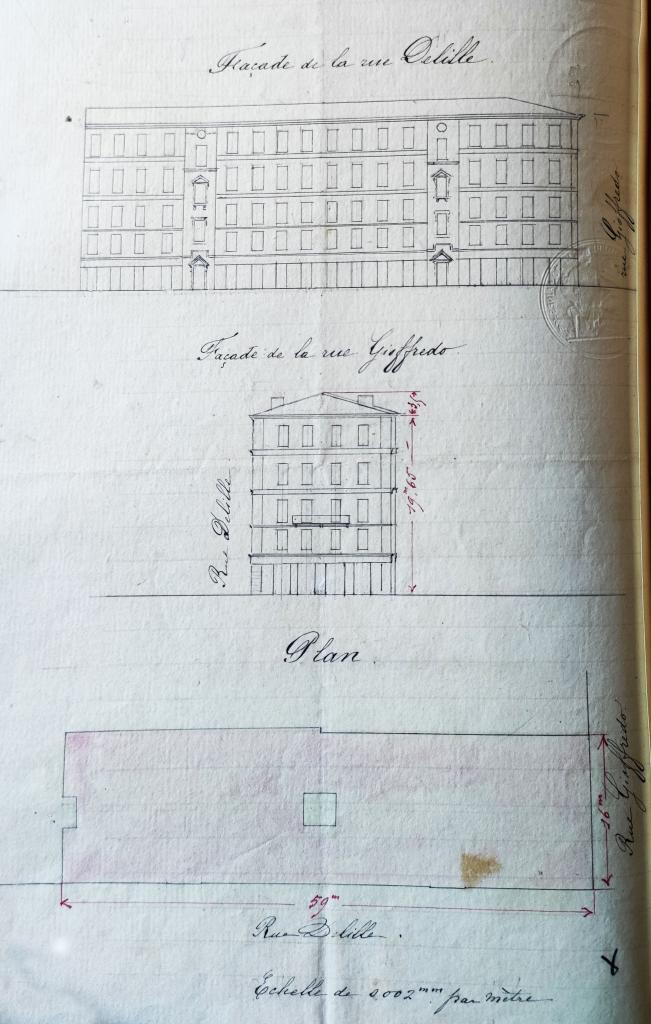 Façade de la rue Delille.
rue Gioffredo
Façade de la rue Gioffredo.
19.m65
Rue Delille
Plan.
Rue Gioffredo
16m
59m
Rue Delille.
Echelle de 0,002mm. par mètre